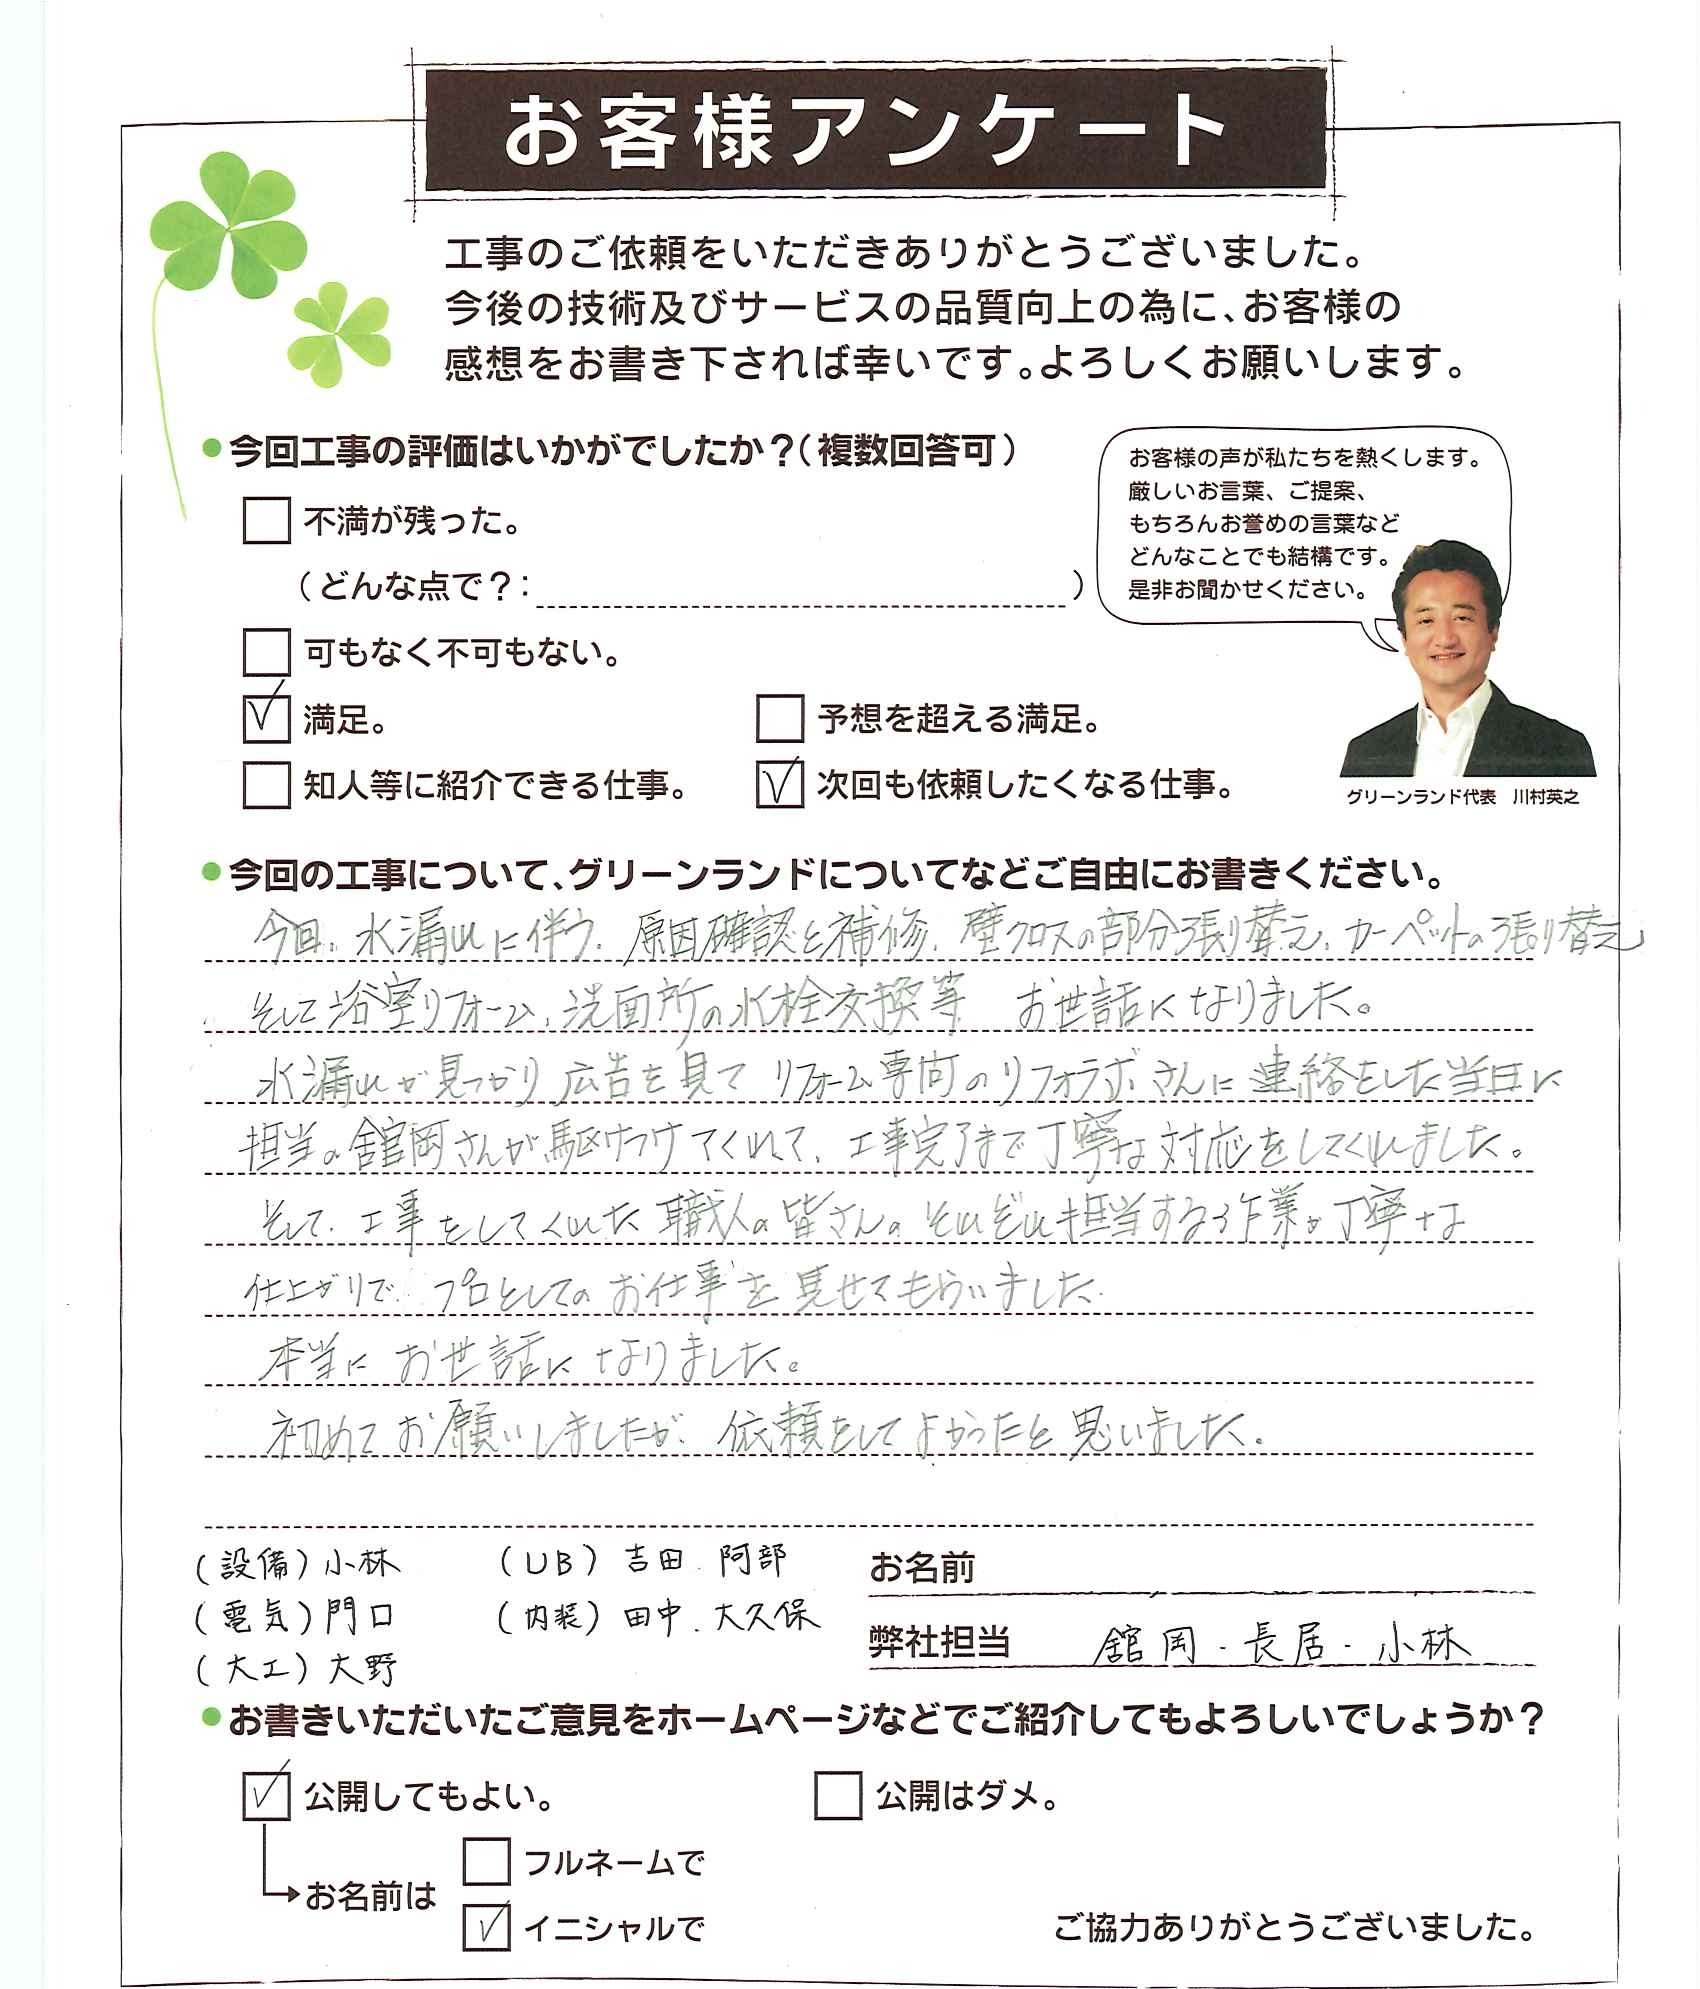 お客様アンケート
工事のご依頼をいただきありがとうございました。
今後の技術及びサービスの品質向上の為に、お客様の
感想をお書き下されば幸いです。よろしくお願いします。
●今回工事の評価はいかがでしたか?(複数回答可)
不満が残った。
(どんな点で?: )
可もなく不可もない。
満足。
予想を超える満足。
知人等に紹介できる仕事。
次回も依頼したくなる仕事。
お客様の声が私たちを熱くします。
厳しいお言葉、ご提案、
もちろんお誉めの言葉など
どんなことでも結構です。
是非お聞かせください。
グリーンランド代表 川村英之
●今回の工事について、グリーンランドについてなどご自由にお書きください。
今回、水漏れに伴う、原因確認と補修、壁クロスの部分張り替え、カーペットの張り替え
そして浴室リフォーム、洗面所の水栓交換等 お世話になりました。
水漏れが見つかり広告を見てリフォーム専門のリフォラボさんに連絡をした当日に
担当の舘岡さんが駆けつけてくれて、工事完了まで丁寧な対応をしてくれました。
そして、工事をしてくれた職人の皆さんのそれぞれ担当する作業が丁寧な
仕上がりで、プロとしてのお仕事を見せてもらいました。
本当にお世話になりました。
初めてお願いしましたが、依頼をしてよかったと思いました。
(設備)小林 (UB)吉田.阿部
(電気)門口 (内装)田中.大久保
(大工)大野
お名前
弊社担当 舘岡・長居・小林
●お書きいただいたご意見をホームページなどでご紹介してもよろしいでしょうか?
公開してもよい。
公開はダメ。
お名前は
フルネームで
イニシャルで
ご協力ありがとうございました。